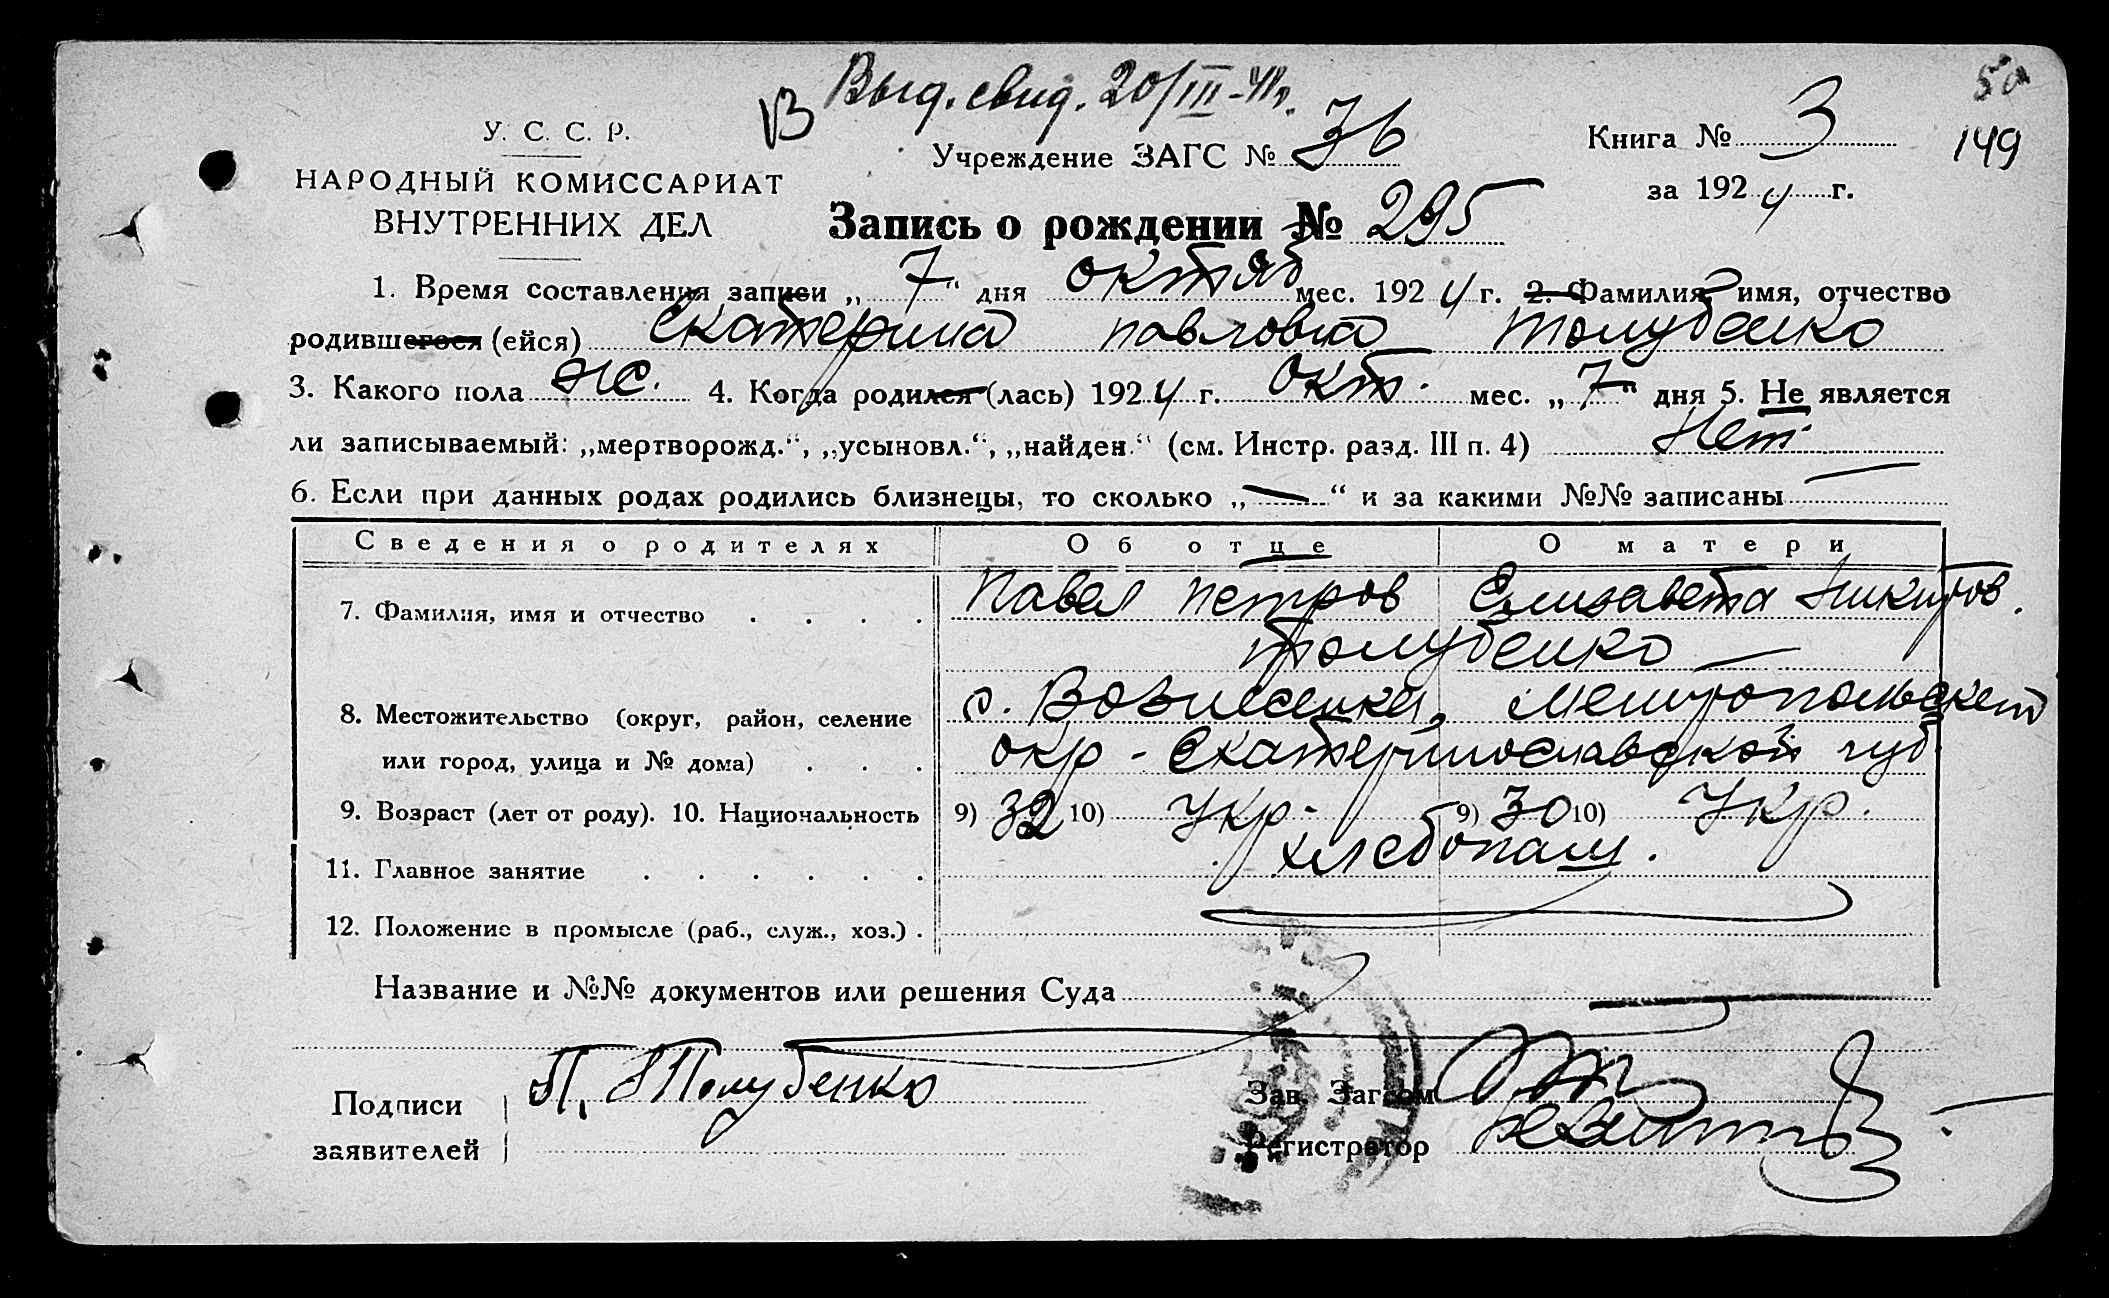 Выд. свид. 20/III-41г.
В
5а
149
У. С. С. Р.
НАРОДНЫЙ КОМИССАРИАТ
ВНУТРЕННИХ ДЕЛ
Учреждение ЗАГС № 36
Книга № 3
за 1924 г.
Запись о рождении № 295
1. Время составления записи „7“ дня октяб мес. 1924 г. 2. Фамилия, имя, отчество
родившегося (ейся) Екатерина Павловна Толубенко
3. Какого пола жс. 4. Когда родился (лась) 1924 г. Окт. мес. „7“ дня 5. Не является
ли записываемый: „мертворожд.“, „усыновл.“, „найден.“ (см. Инстр. разд. III п. 4) Нет
6. Если при данных родах родились близнецы, то сколько „—“ и за какими №№ записаны —
Сведения о родителях Об отце О матери
7. Фамилия, имя и отчество Павел Петров Елизавета Никитов.
Толубенко —
8. Местожительство (округ, район, селение с. Вознесенка,
или город, улица и № дома) окр - Екатеринославской губ
9. Возраст (лет от роду). 10. Национальность 9) 32 10) Укр. 9) 30 10) Укр.
11. Главное занятие хлебопаш.
12. Положение в промысле (раб., служ., хоз.)
Название и №№ документов или решения Суда
Подписи П. Толубенко
заявителей
Зав. Загсом
Регистратор